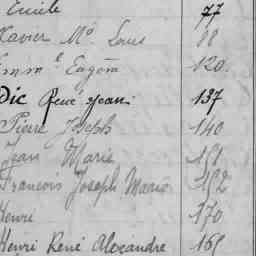 Emile 77
Xavier Me Louis 88
Emm.l Eugène 120
Dic René Jean 137
Pierre Joseph 140
Jean Marie 151
François Joseph Marie 152
Henri 170
Henri René Alexandre 165